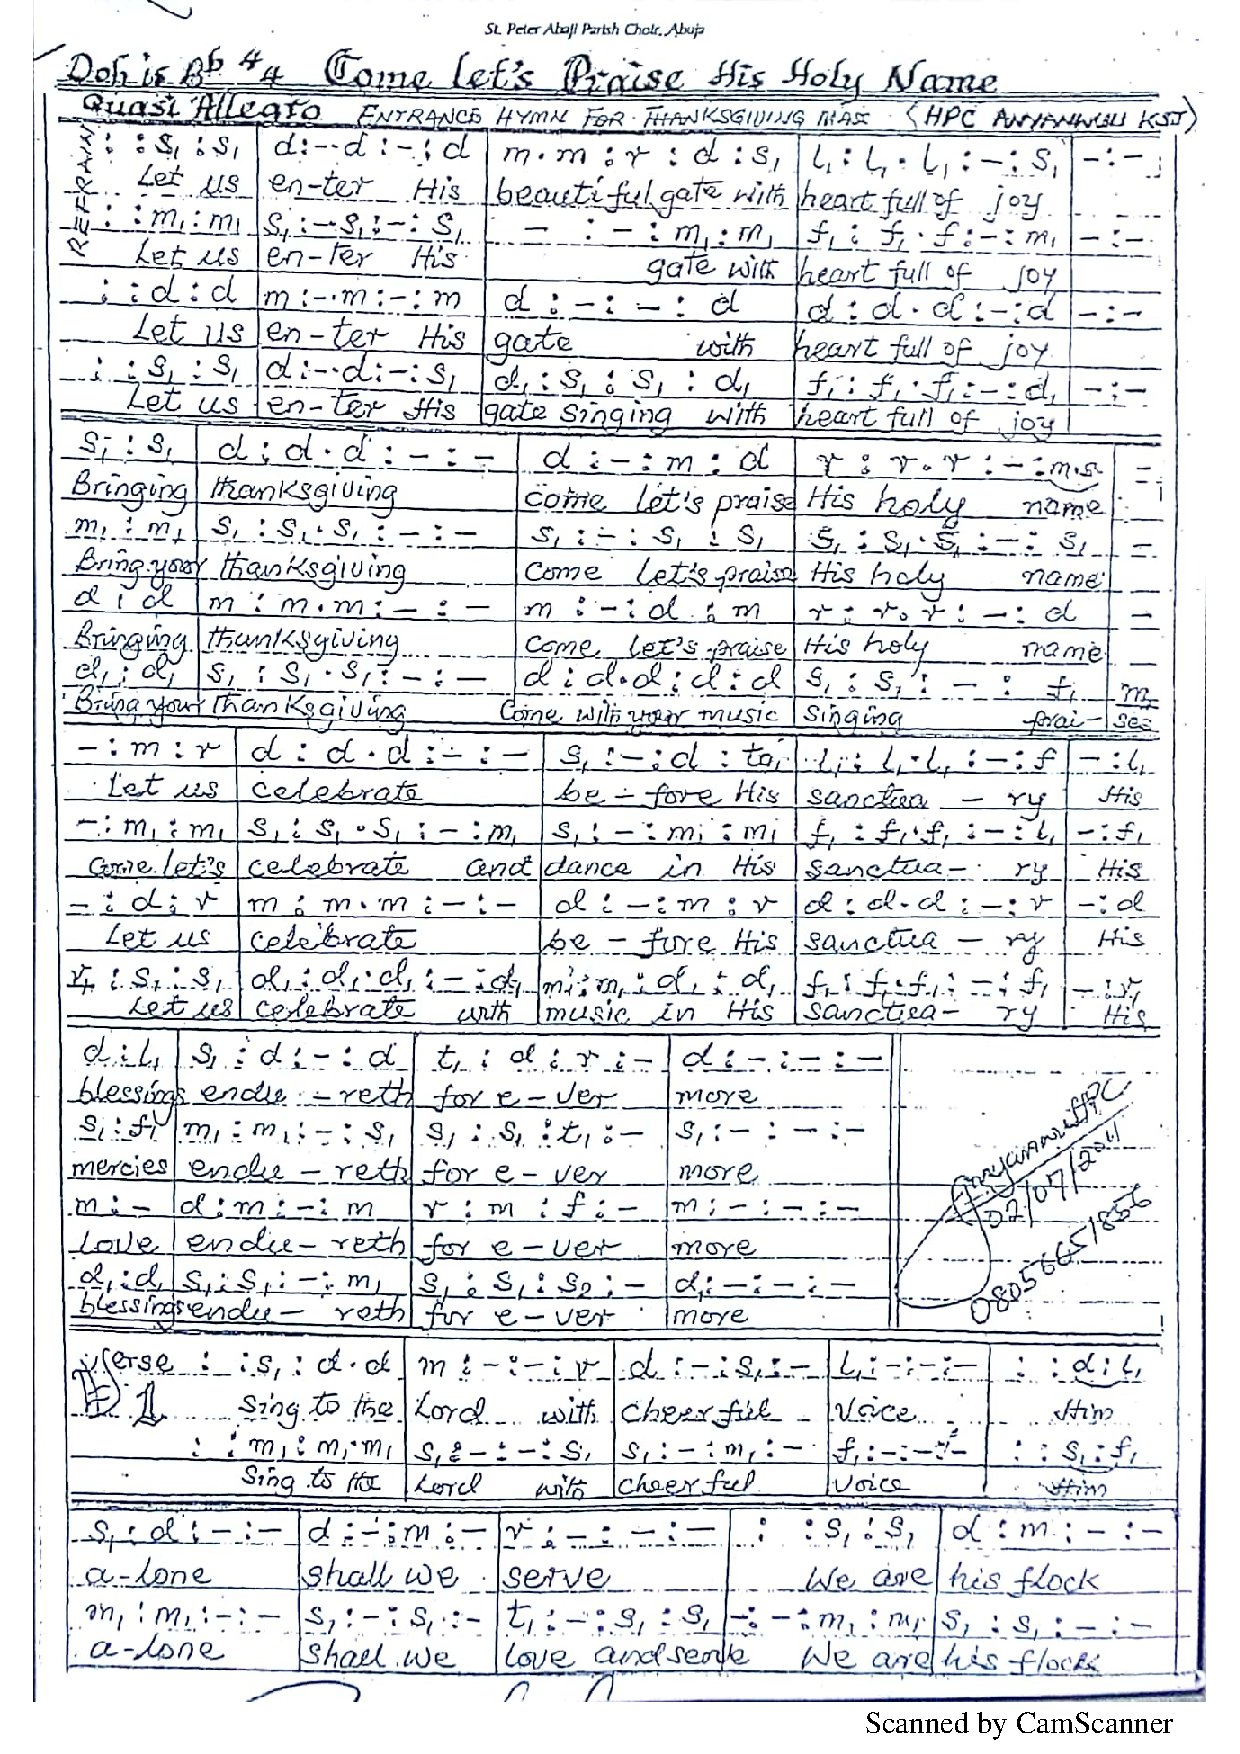 St. Peter Abaji Parish Choir, Abuja
Doh is Bb 4/4 Come Let's Praise His Holy Name
Quasi Allegro ENTRANCE HYMN FOR THANKSGIVING MASS (HPC ANYANWU KSJ)
REFRAIN
: : s₁ : s₁ | d : - . d : - : d | m . m : r : d : s₁ | l₁ : l₁ . l₁ : - : s₁ | - : -
Let us | en-ter His | beautiful gate with | heart full of joy
: : m₁ : m₁ | s₁ : - s₁ : - : s₁ | - : - : m₁ : m₁ | f₁ : f₁ . f : - : m₁ | - : -
Let us | en-ter His | gate with | heart full of joy
: : d : d | m : - . m : - : m | d : - : - : d | d : d . d : - : d | - : -
Let us | en-ter His | gate with | heart full of joy
: : s₁ : s₁ | d : - . d : - : s₁ | d₁ : s₁ : s₁ : d₁ | f₁ : f₁ : f₁ : - : d₁ | - : -
Let us | en-ter His | gate singing with | heart full of joy
s₁ : s₁ | d : d . d : - : - | d : - : m : d | r : r . r : - : m . s | -
Bringing | thanksgiving | come let's praise | His holy name
m₁ : m₁ | s₁ : s₁ . s₁ : - : - | s₁ : - : s₁ : s₁ | s₁ : s₁ . s₁ : - : s₁ | -
Bring your | thanksgiving | Come let's praise | His holy name
d : d | m : m . m : - : - | m : - : d : m | r : r . r : - : d | -
Bringing | thanksgiving | come let's praise | His holy name
d₁ : d₁ | s₁ : s₁ . s₁ : - : - | d : d . d : d : d | s₁ : s₁ : - : f₁ | m₁
Bring your | thanksgiving | Come with your music | singing prai- | ses
- : m : r | d : d . d : - : - | s₁ : - : d : ta₁ | l₁ : l₁ . l₁ : - : f | - : l₁
Let us | celebrate | be - fore His | sanctua - ry | His
- : m₁ : m₁ | s₁ : s₁ . s₁ : - : m₁ | s₁ : - : m₁ : m₁ | f₁ : f₁ . f₁ : - : l₁ | - : f₁
Come let's | celebrate and | dance in His | sanctua- ry | His
- : d : r | m : m . m : - : - | d : - : m : r | d : d . d : - : r | - : d
Let us | celebrate | be - fore His | sanctua - ry | His
: s₁ : s₁ | d₁ : d₁ . d₁ : - : d₁ | m₁ : m₁ : d₁ : d₁ | f₁ : f₁ . f₁ : - : f₁ | - : r₁
Let us | celebrate with | music in His | sanctua- ry | His
d : l₁ | s₁ : d : - : d | t₁ : d : r : - | d : - : - : -
blessings | endu - reth | for e - ver | more
s₁ : f₁ | m₁ : m₁ : - : s₁ | s₁ : s₁ : t₁ : - | s₁ : - : - : -
mercies | endu - reth | for e - ver | more
m : - | d : m : - : m | r : m : f : - | m : - : - : -
Love | endu - reth | for e - ver | more
d₁ : d₁ | s₁ : s₁ : - : m₁ | s₁ : s₁ : s₂ : - | d₁ : - : - : -
blessings | endu - reth | for e - ver | more
02/07/2011
08056651856
Verse : : s₁ : d . d | m : - : - : r | d : - : s₁ : - | l₁ : - : - : - | : : d : l₁
1 Sing to the | Lord with | cheerful | voice | Him
: : m₁ : m₁ . m₁ | s₁ : - : - : s₁ | s₁ : - : m₁ : - | f₁ : - : - : - | : : s₁ : f₁
Sing to the | Lord with | cheerful | voice | Him
s₁ : d : - : - | d : - : m : - | r : - : - : - | : : s₁ : s₁ | d : m : - : -
a-lone | shall we | serve | We are | his flock
m₁ : m₁ : - : - | s₁ : - : s₁ : - | t₁ : - : s₁ : s₁ | - : - : m₁ : m₁ | s₁ : s₁ : - : -
a-lone | shall we | love and serve | We are | his flock
Scanned by CamScanner